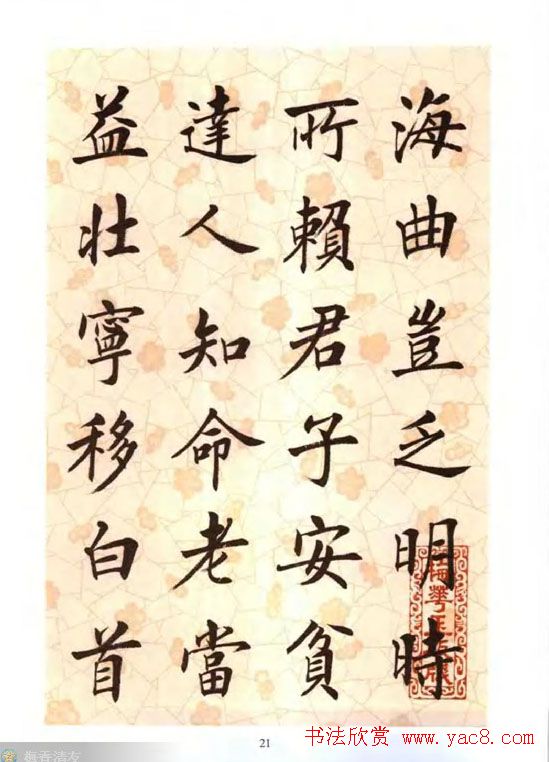 海曲豈乏明時
所賴君子安貧
達人知命老當
益壯寧移白首
21
书法欣赏 www.yac8.com
梅香清友